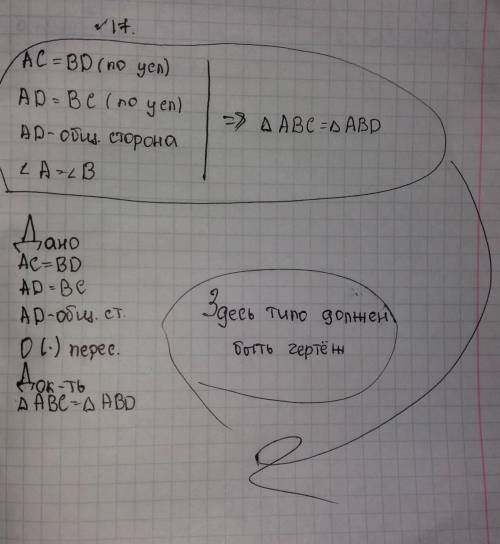 √ 17.
AC = BD (по усл)
AD = BC (по усл)
AD - общ. сторона
∠ A = ∠ B
=> △ ABC = △ ABD
Дано
AC = BD
AD = BC
AD - общ. ст.
O (·) перес.
Док-ть
△ ABC = △ ABD
Здесь типо должен
быть чертёж